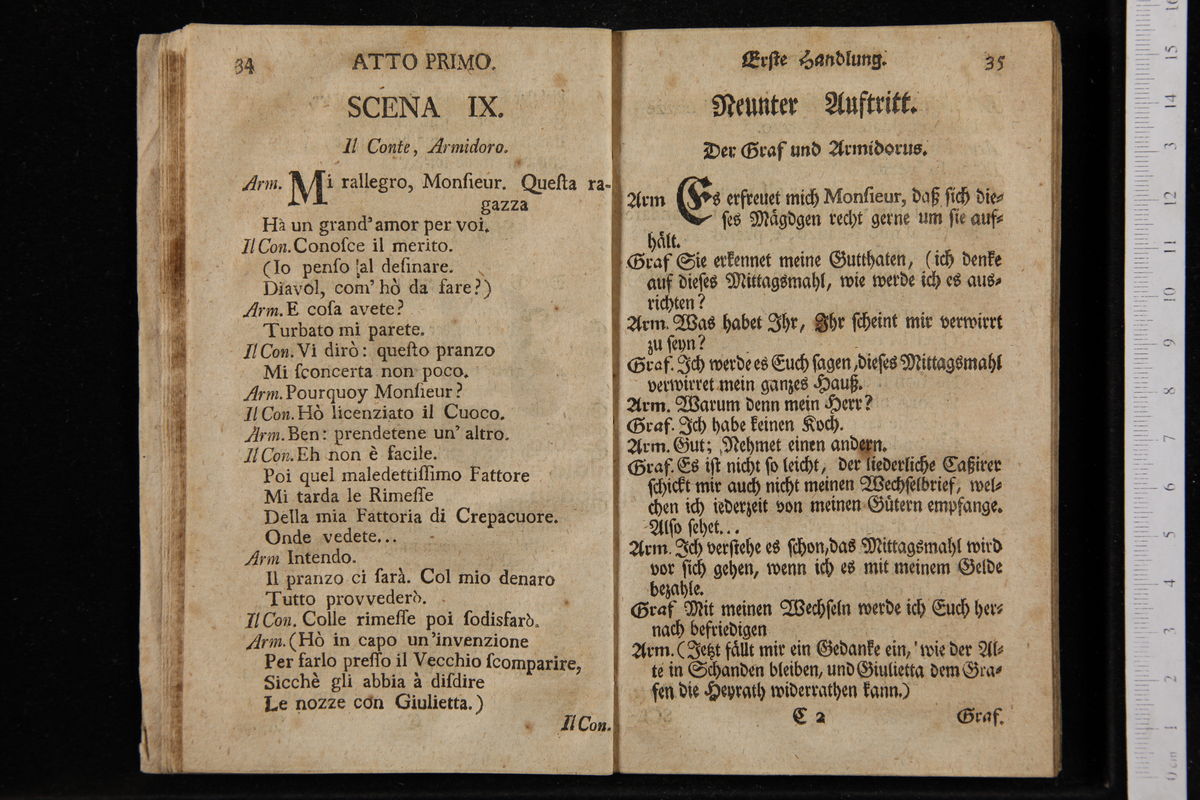 34 ATTO PRIMO.
SCENA IX.
Il Conte, Armidoro.
Arm. Mi rallegro, Monſieur. Queſta ra-
gazza
Hà un grand' amor per voi.
Il Con. Conoſce il merito.
(Io penſo al deſinare.
Diavol, com' hò da fare?)
Arm. E coſa avete?
Turbato mi parete.
Il Con. Vi dirò: queſto pranzo
Mi ſconcerta non poco.
Arm. Pourquoy Monſieur?
Il Con. Hò licenziato il Cuoco.
Arm. Ben: prendetene un' altro.
Il Con. Eh non è facile.
Poi quel maledettiſſimo Fattore
Mi tarda le Rimeſſe
Della mia Fattoria di Crepacuore.
Onde vedete...
Arm Intendo.
Il pranzo ci ſarà. Col mio denaro
Tutto provvederò.
Il Con. Colle rimeſſe poi ſodisfarò.
Arm. (Hò in capo un' invenzione
Per farlo preſſo il Vecchio ſcomparire,
Sicchè gli abbia à diſdire
Le nozze con Giulietta.)
Il Con.
Erſte Handlung. 35
Neunter Auftritt.
Der Graf und Armidorus.
Arm Es erfreuet mich Monſieur, daß ſich die-
ſes Mägdgen recht gerne um ſie auf-
hält.
Graf Sie erkennet meine Gutthaten, (ich denke
auf dieſes Mittagsmahl, wie werde ich es aus-
richten?
Arm. Was habet Ihr, Ihr ſcheint mir verwirrt
zu ſeyn?
Graf. Ich werde es Euch ſagen, dieſes Mittagsmahl
verwirret mein ganzes Hauß.
Arm. Warum denn mein Herr?
Graf. Ich habe keinen Koch.
Arm. Gut; Nehmet einen andern.
Graf. Es iſt nicht ſo leicht, der liederliche Caßirer
ſchickt mir auch nicht meinen Wechſelbrief, wel-
chen ich iederzeit von meinen Gütern empfange.
Alſo ſehet...
Arm. Ich verſtehe es ſchon, das Mittagsmahl wird
vor ſich gehen, wenn ich es mit meinem Gelde
bezahle.
Graf Mit meinen Wechſeln werde ich Euch her-
nach befriedigen
Arm. (Jetzt fällt mir ein Gedanke ein, wie der Al-
te in Schanden bleiben, und Giulietta dem Gra-
fen die Heyrath widerrathen kann.)
C 2 Graf.